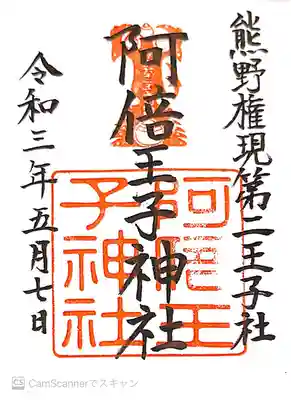 熊野権現第二王子社
阿倍王子神社
令和三年五月七日
阿倍王
子神社
CamScannerでスキャン